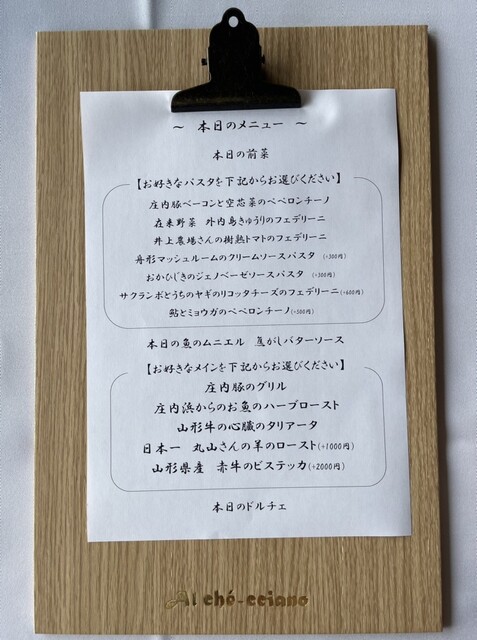 ～ 本日のメニュー ～
本日の前菜
【お好きなパスタを下記からお選びください】
庄内豚ベーコンと空芯菜のペペロンチーノ
在来野菜 外内島きゅうりのフェデリーニ
井上農場さんの樹熟トマトのフェデリーニ
舟形マッシュルームのクリームソースパスタ (+300円)
おかひじきのジェノベーゼソースパスタ (+300円)
サクランボとうちのヤギのリコッタチーズのフェデリーニ(+600円)
鮎とミョウガのペペロンチーノ(+500円)
本日の魚のムニエル 焦がしバターソース
【お好きなメインを下記からお選びください】
庄内豚のグリル
庄内浜からのお魚のハーブロースト
山形牛の心臓のタリアータ
日本一 丸山さんの羊のロースト(+1000円)
山形県産 赤牛のビステッカ(+2000円)
本日のドルチェ
Al ché-cciano